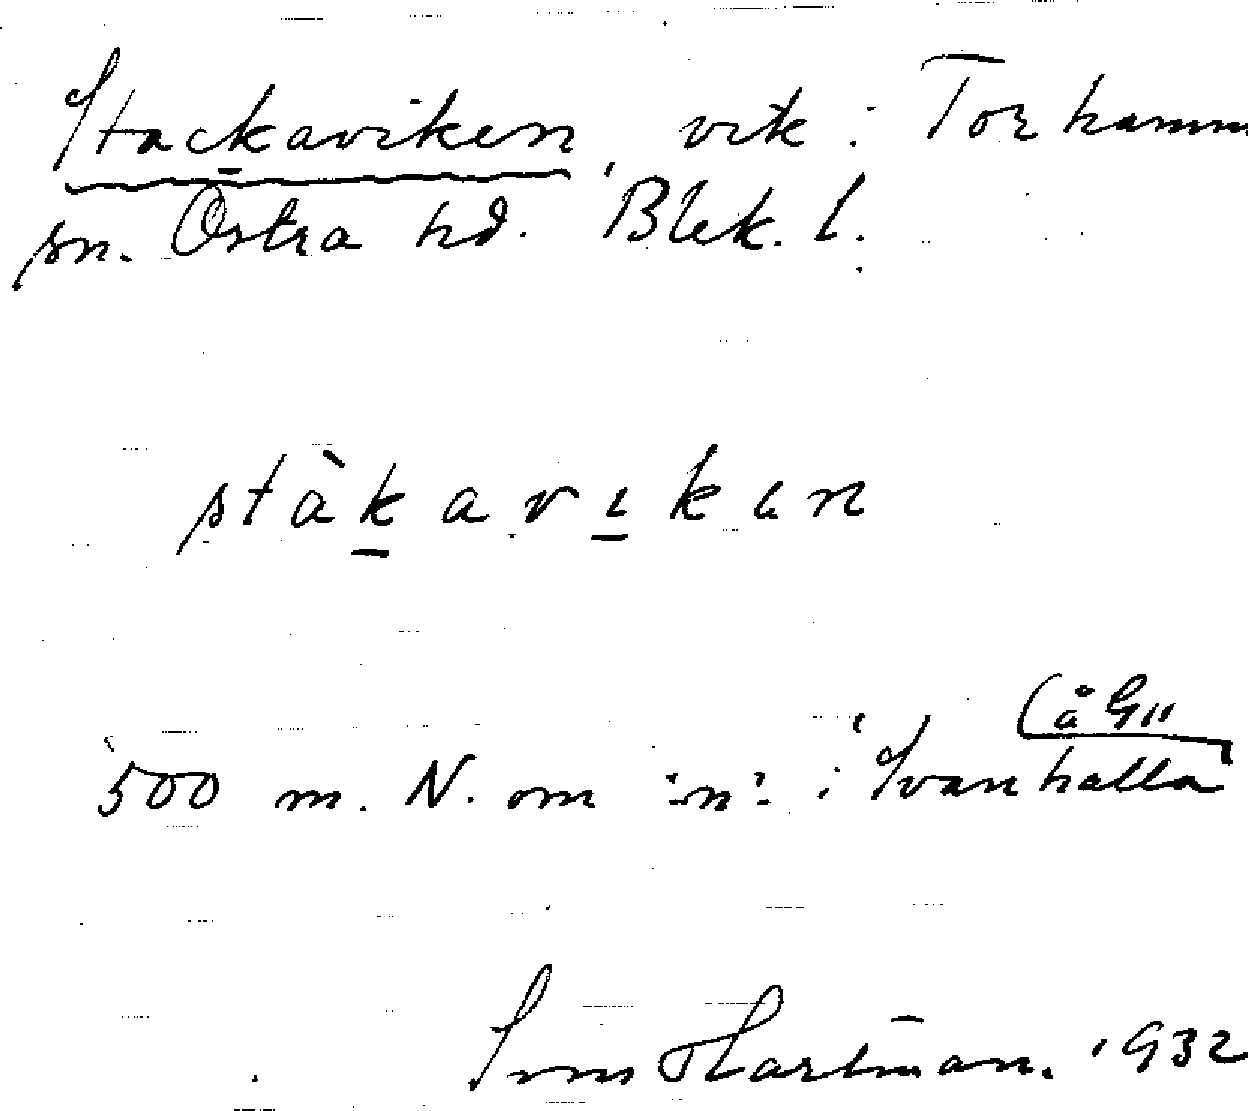 Stackaviken, vik i Torhamn
sn. Östra hd. Blek. l.
stàkavikin
(å Gn
500 m. N. om "n" i Svanhalla
Hartman. 1932